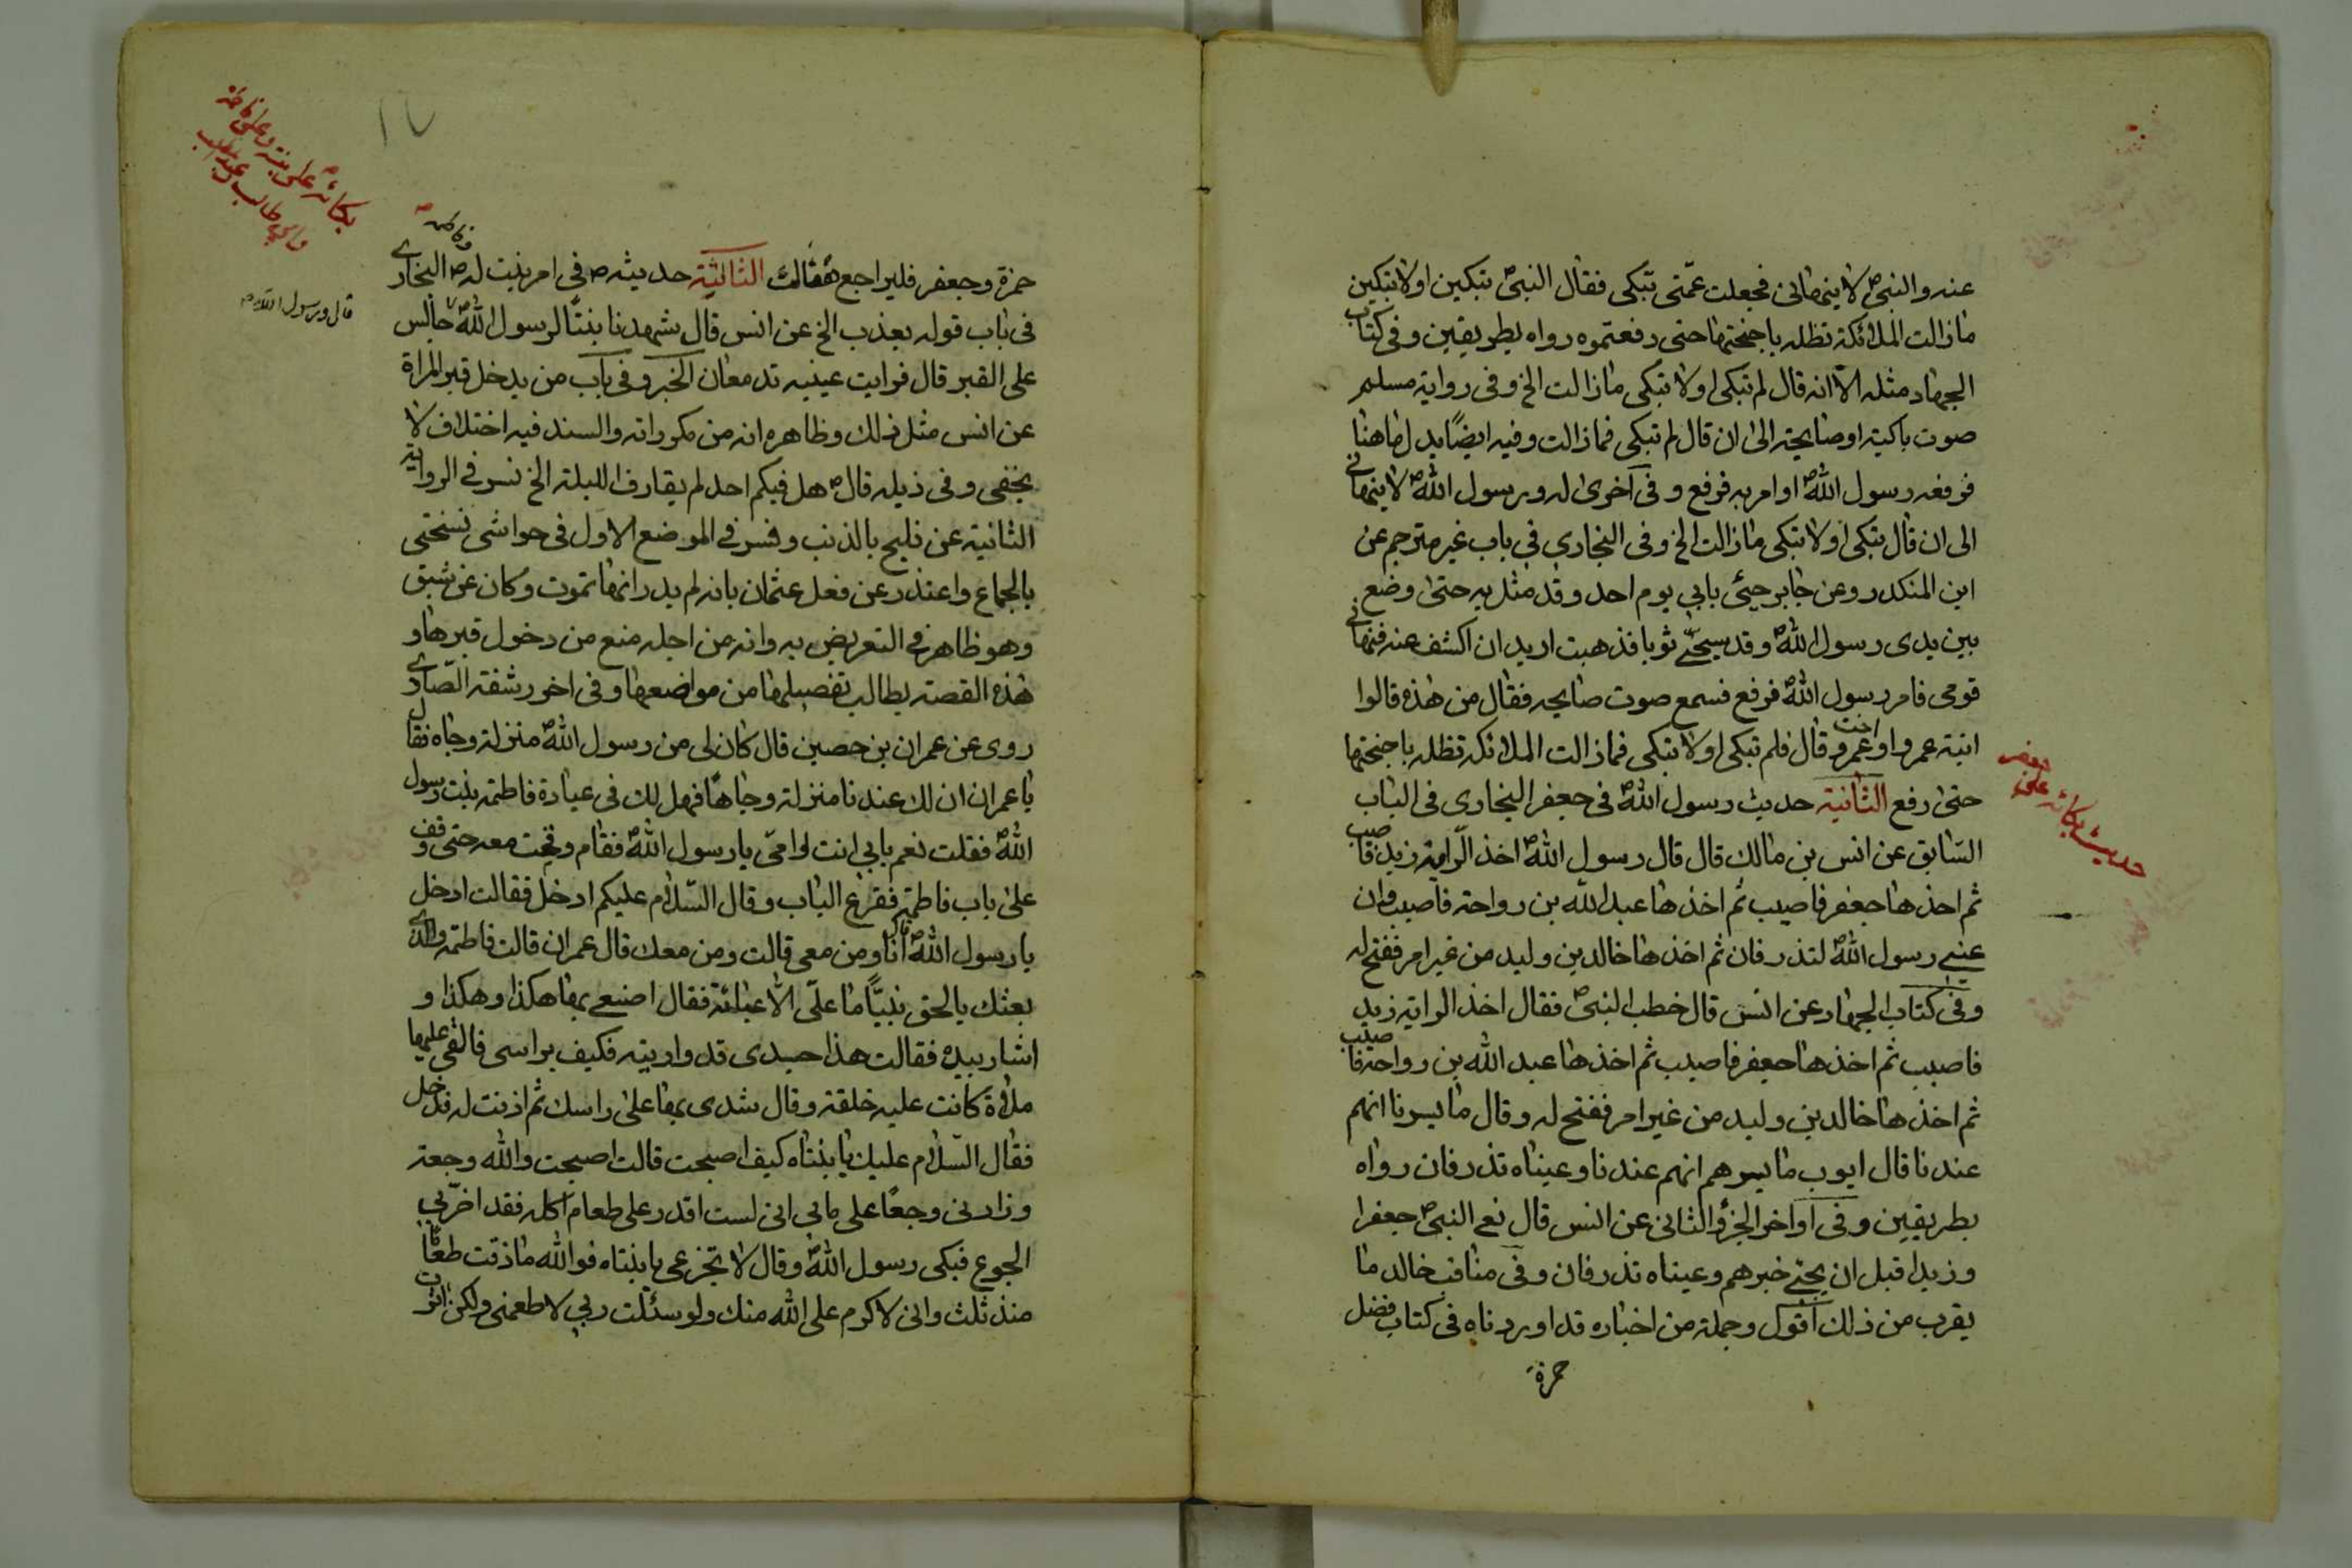 عنه والنبیؐ لا ینهانی فجعلت عمّتی تبکی فقال النبیؐ تبکین اولا تبکین
مازالت الملائکة تظله باجنحتها حتی رفعتموه رواه بطریقین وفی کتاب
الجهاد مثله الّا انه قال لم تبکی اولا تبکی مازالت الخ وفی روایة مسلم
صوت باکیة اوصایحة الی ان قال لم تبکی فمازالت وفیه ایضًا بدل ماهنا
فرفعه رسول اللهؐ او امر به فرفع و فی آخری له ورسول اللهؐ لا ینهانی
الی ان قال تبکی اولا تبکی مازالت الخ وفی البخاری فی باب غیر مترجم عن
ابن المنکدر وعن جابر جیٔ بابی یوم احد وقد مثل به حتی وضع
بین یدی رسول اللهؐ وقد سجّی ثوبا فذهبت ارید ان اکشف عنه فنهانی
قومی فامر رسول اللهؐ فرفع فسمع صوت صایحه فقال من هذه قالوا
ابنة عمرو او اخت عمرو قال فلم تبکی اولا تبکی فمازالت الملائکة تظله باجنحتها
حتی رفع الثانیة حدیث رسول اللهؐ فی جعفر البخاری فی الباب
حدیث بکائه علی جعفر
السّابق عن انس بن مالک قال قال رسول اللهؐ اخذ الرّایة زید فاصیب
ثم اخذها جعفر فاصیب ثم اخذها عبدالله بن رواحة فاصیب وان
عینی رسول اللهؐ لتذرفان ثم اخذها خالد بن ولید من غیر امر ففتح له
وفی کتاب الجهاد عن انس قال خطب النبیؐ فقال اخذ الرایة زید
فاصیب ثم اخذها جعفر فاصیب ثم اخذها عبد الله بن رواحة فاصیب
ثم اخذها خالد بن ولید من غیر امر ففتح له وقال ما یسرنا انهم
عندنا قال ایوب ما یسرهم انهم عندنا وعیناه تذرفان رواه
بطریقین وفی اواخر الجزؤ الثانی عن انس قال نعی النبیؐ جعفرا
وزیدا قبل ان یجئ خبرهم وعیناه تذرفان وفی مناقب خالد ما
یقرب من ذلک اقول وجملة من اخباره قد اوردناه فی کتاب فضل
حمزة
١٧
بکائهؐ علی بنته وعلی فاطمة
حمزة وجعفر فلیراجع الثالثة حدیثهؐ فی امر بنت لهؐ البخاری
قال ورسول اللهؐ
فی باب قوله یعذب الخ عن انس قال شهدنا بنتًا لرسول اللهؐ جالس
علی القبر قال فرایت عینیه تدمعان الخبر وفی باب من یدخل قبر المراة
عن انس مثل ذلک وظاهره انه من مکرراته والسند فیه اختلاف لا
یخفی وفی ذیله قالؐ هل فیکم احد لم یقارف اللیلة الخ فسر فی الروایة
الثانیة عن فلیح بالذنب وفسر فی الموضع الاول فی حواشی نسختی
بالجماع واعتذر عن فعل عثمان بانه لم یدر انها تموت وکان عن شبق
وهو ظاهر فی التعریض به وانه من اجله منع من دخول قبرها و
هذه القصة یطالب تفصیلها من مواضعها وفی اخر رشفة الصّادی
روی عن عمران بن حصین قال کان لی من رسول اللهؐ منزلة وجاه فقال
یا عمران ان لک عندنا منزلة وجاهًا فهل لک فی عیادة فاطمة بنت رسول
اللهؐ فقلت نعم بابی انت وامّی یا رسول اللهؐ فقام وقمت معه حتی وقف
علی باب فاطمة فقرع الباب وقال السّلام علیکم ادخل فقالت ادخل
یا رسول اللهؐ قال انا ومن معی قالت ومن معک قال عمران قالت فاطمة والذی
بعثک بالحق نبیًّا ما علیّ الّا عبائة فقال اصنعی بها هکذا وهکذا و
اشار بیده فقالت هذا جسدی قد واریته فکیف براسی فالقی علیها
ملاءة کانت علیه خلقة وقال شدی بها علی راسک ثم اذنت له فدخل
فقال السّلام علیک یا بنتاه کیف اصبحت قالت اصبحت والله وجعة
وزادنی وجعًا علی مابی انی لست اقدر علی طعام اکله فقد اضرّ بی
الجوع فبکی رسول اللهؐ وقال لا تجزعی یا بنتاه فوالله ما ذقت طعامًا
منذ ثلث وانی لاکرم علی الله منک ولو سئلت ربی لاطعمنی ولکن اثرت